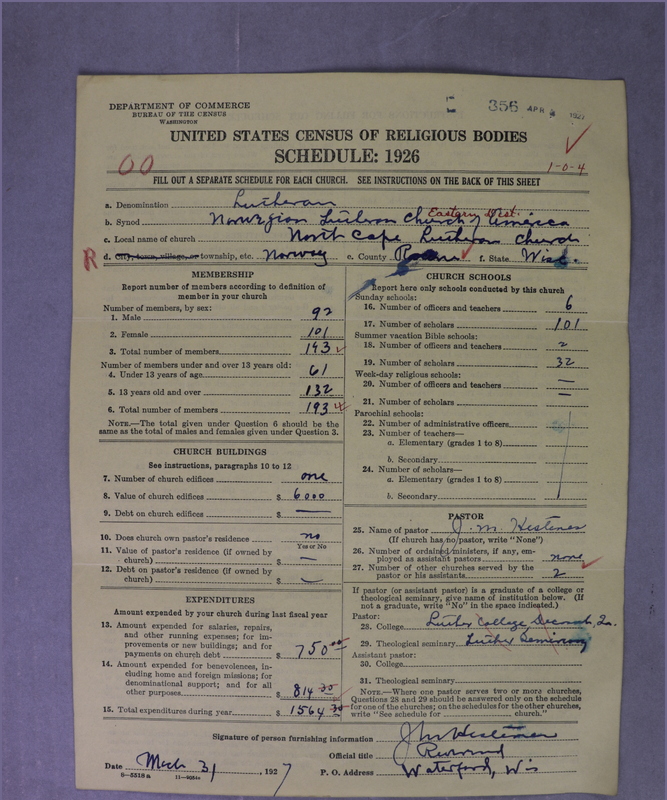 356 APR 1927
DEPARTMENT OF COMMERCE
BUREAU OF THE CENSUS
WASHINGTON
UNITED STATES CENSUS OF RELIGIOUS BODIES
SCHEDULE: 1926
00
1-0-4
FILL OUT A SEPARATE SCHEDULE FOR EACH CHURCH. SEE INSTRUCTIONS ON THE BACK OF THIS SHEET
a. Denomination Lutheran
Eastern Dist.
b. Synod Norwegian Lutheran Church of America
c. Local name of church North Cape Lutheran Church
R d. City, town, village, or township, etc. Norway e. County Racine f. State Wisc.
MEMBERSHIP
Report number of members according to definition of
member in your church
Number of members, by sex:
1. Male 92
2. Female 101
3. Total number of members 193
Number of members under and over 13 years old:
4. Under 13 years of age 61
5. 13 years old and over 132
6. Total number of members 193
NOTE.—The total given under Question 6 should be the
same as the total of males and females given under Question 3.
CHURCH BUILDINGS
See instructions, paragraphs 10 to 12
7. Number of church edifices one
8. Value of church edifices $ 6000
9. Debt on church edifices $ —
10. Does church own pastor's residence? no
Yes or No
11. Value of pastor's residence (if owned by
church) $ —
12. Debt on pastor's residence (if owned by
church) $ —
EXPENDITURES
Amount expended by your church during last fiscal year
13. Amount expended for salaries, repairs,
and other running expenses; for im-
provements or new buildings; and for
payments on church debt $ 750 00
14. Amount expended for benevolences, in-
cluding home and foreign missions; for
denominational support; and for all
other purposes $ 814 30
15. Total expenditures during year $ 1564 30
CHURCH SCHOOLS
Report here only schools conducted by this church
Sunday schools:
16. Number of officers and teachers 6
17. Number of scholars 101
Summer vacation Bible schools:
18. Number of officers and teachers 2
19. Number of scholars 32
Week-day religious schools:
20. Number of officers and teachers —
21. Number of scholars —
Parochial schools:
22. Number of administrative officers
23. Number of teachers—
a. Elementary (grades 1 to 8)
b. Secondary
24. Number of scholars—
a. Elementary (grades 1 to 8)
b. Secondary
PASTOR
25. Name of pastor J. M. Hestenes
(If church has no pastor, write "None")
26. Number of ordained ministers, if any, em-
ployed as assistant pastors none
27. Number of other churches served by the
pastor or his assistants 2
If pastor (or assistant pastor) is a graduate of a college or
theological seminary, give name of institution below. (If
not a graduate, write "No" in the space indicated.)
Pastor:
28. College Luther College Decorah, Ia.
29. Theological seminary Luther Seminary
Assistant pastor:
30. College
31. Theological seminary
NOTE.—Where one pastor serves two or more churches,
Questions 28 and 29 should be answered only on the schedule
for one of the churches; on the schedules for the other churches,
write "See schedule for church."
Signature of person furnishing information J M Hestenes
Official title Reverend
Date Mch 31, 1927 P. O. Address Waterford, Wis
8-5518a